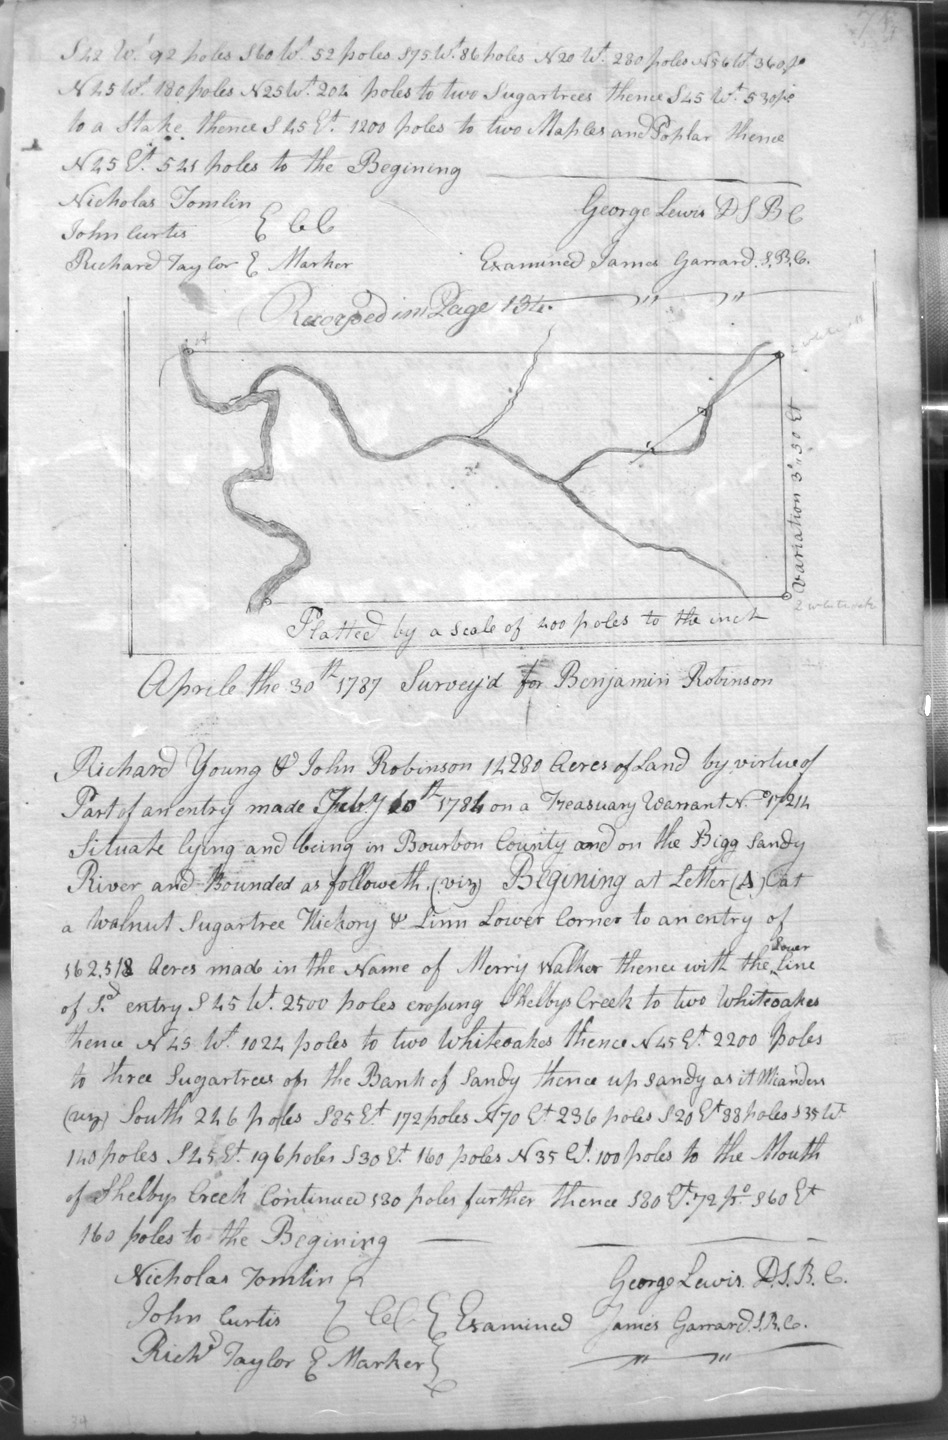 S42 Wt 92 poles S60 Wt 52 poles S75 Wt 86 poles N20 Wt 280 poles N56 Wt 360 po
N45 Wt 180 poles N25 Wt 204 poles to two Sugartrees thence S45 Wt 530 po
to a Stake thence S45 Et 1200 poles to two Maples and Poplar thence
N45 Et 521 poles to the Begining
Nicholas Tomlin
John Curtis } C C
George Lewis D S B C
Richard Taylor } Marker
Examined James Garrard. S.B.C.
Recorded in Page 134.
2 white
Variation 3° 30 Et
2 white oak
Platted by a scale of 400 poles to the inch
Aprile the 30th 1787 Survey'd for Benjamin Robinson
Richard Young & John Robinson 14280 Acres of Land by virtue of
Part of an entry made July 10th 1784 on a Treasuary Warrant No 17214
Situate lying and being in Bourbon County and on the Bigg Sandy
River and Bounded as followeth. (viz) Begining at Letter (A) at
a Walnut Sugartree Hickory & Linn Lower Corner to an entry of
Acres made in the Name of Merry Walker thence with the Lower line
of Sd entry S45 Wt. 2500 poles crossing Shelbys Creek to two Whiteoakes
thence N45 Wt. 1024 poles to two Whiteoakes thence N45 Et. 2200 poles
to three Sugartrees on the Bank of Sandy thence up Sandy as it Meanders
(viz) South 246 poles S85 Et 172 poles N70 Et 236 poles S20 Et 88 poles S35 Wt
140 poles S45 Et. 196 poles S30 Et 160 poles N35 Et. 100 poles to the Mouth
of Shelbys Creek Continued 580 poles further thence S80 Et. 72 po. S60 Et
160 poles to the Begining
Nicholas Tomlin }
George Lewis. D.S.B.C.
John Curtis } C C } Examined James Garrard. S.B.C.
Richd Taylor } Marker }